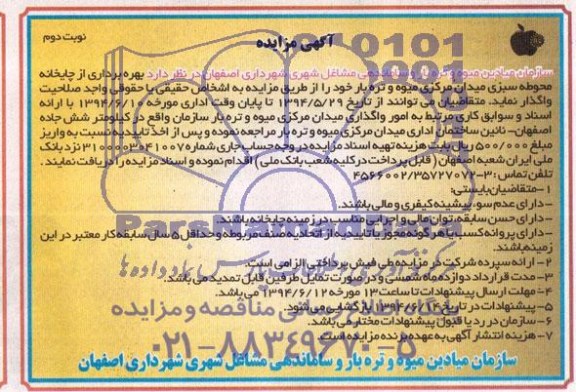 نوبت دوم
آگهی مزایده
سازمان میادین میوه و تره بار و ساماندهی مشاغل شهری شهرداری اصفهان در نظر دارد بهره برداری از چایخانه
محوطه سبزی میدان مرکزی میوه و تره بار خود را از طریق مزایده به اشخاص حقیقی یا حقوقی واجد صلاحیت
واگذار نماید. متقاضیان می توانند از تاریخ ۱۳۹۴/۵/۲۹ تا پایان وقت اداری مورخه ۱۳۹۴/۶/۱۰ با ارائه
اسناد و سوابق کاری مرتبط به امور واگذاری میدان مرکزی میوه و تره بار سازمان واقع در کیلومتر شش جاده
اصفهان- نائین ساختمان اداری میدان مرکزی میوه و تره بار مراجعه نموده و پس از اخذ تاییدیه نسبت به واریز
مبلغ ۵۰۰/۰۰۰ ریال بابت هزینه تهیه اسناد مزایده در وجه حساب جاری شماره ۳۱۰۰۰۰۳۰۴۱۰۰۷ نزد بانک
ملی ایران شعبه اصفهان ( قابل پرداخت در کلیه شعب بانک ملی ) اقدام نموده و اسناد مزایده را دریافت نمایند .
تلفن تماس :۳-۳۵۷۲۷۰۷۲/۴۵۶۶۰۰۲
۱-متقاضیان بایستی:
- دارای عدم سوء پیشینه کیفری و مالی باشند.
- دارای حسن سابقه، توان مالی و اجرایی مناسب در زمینه چایخانه باشند.
- دارای پروانه کسب یا هر گونه مجوز یا تاییدیه از اتحادیه صنف مربوطه و حداقل ۵ سال سابقه کار معتبر در این
زمینه باشند.
۲- ارائه سپرده شرکت در مزایده طی فیش پرداختی الزامی است.
۳- مدت قرارداد دوازده ماه شمسی و در صورت تمایل طرفین قابل تمدید می باشد.
۴- مهلت ارسال پیشنهادات تا ساعت ۱۳ مورخه ۱۳۹۴/۶/۱۲ می باشد.
۵- پیشنهادات در تاریخ ۱۳۹۴/۶/۱۴ بازگشایی می شود.
۶- سازمان در رد یا قبول پیشنهادات مختار می باشد.
۷- هزینه انتشار آگهی به عهده برنده مزایده است.
۰۲۱-۸۸۳۴۹۶۷۰-۵
سازمان میادین میوه و تره بار و ساماندهی مشاغل شهری شهرداری اصفهان